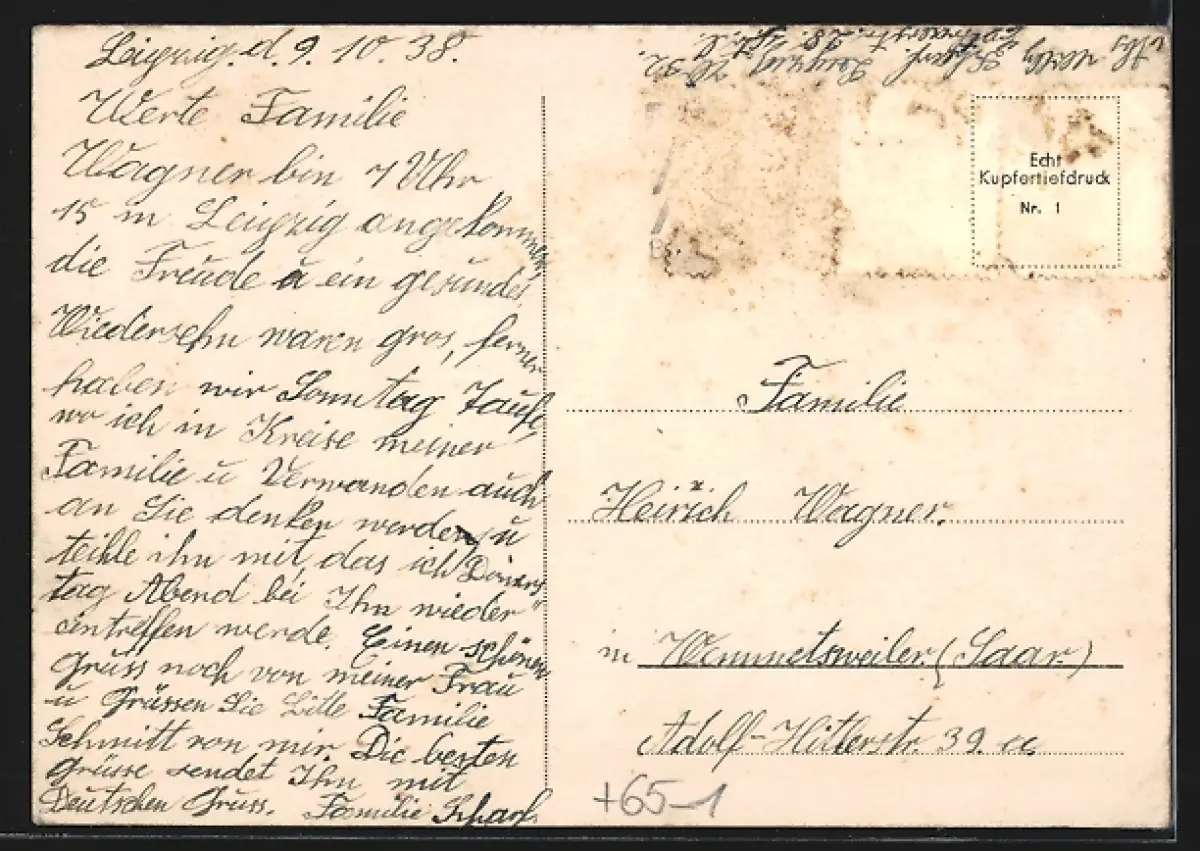 Leipzig. d. 9. 10. 38.
Werte Familie
Wagner bin 7 Uhr
15 in Leipzig angekommen
die Freude u ein gesundes
Wiedersehn waren gros, ferner
haben wir Sonntag Taufe,
wo ich in Kreise meiner
Familie u Verwanden auch
an Sie denken werden, u
teihle ihn mit, das ich Donners
tag Abend bei Ihn wieder
eintreffen werde. Einen schönen
Gruss noch von meiner Frau
u Grüssen Sie bitte Familie
Schmitt von mir Die besten
Grüsse sendet Ihn mit
Deutschen Gruss. Familie Scharf
Scharf. Leipzig
Echt
Kupfertiefdruck
Nr. 1
Familie
Heirich Wagner.
in Wemmetsweiler (Saar)
Adolf-Hitlerstr. 39. a
+65-1